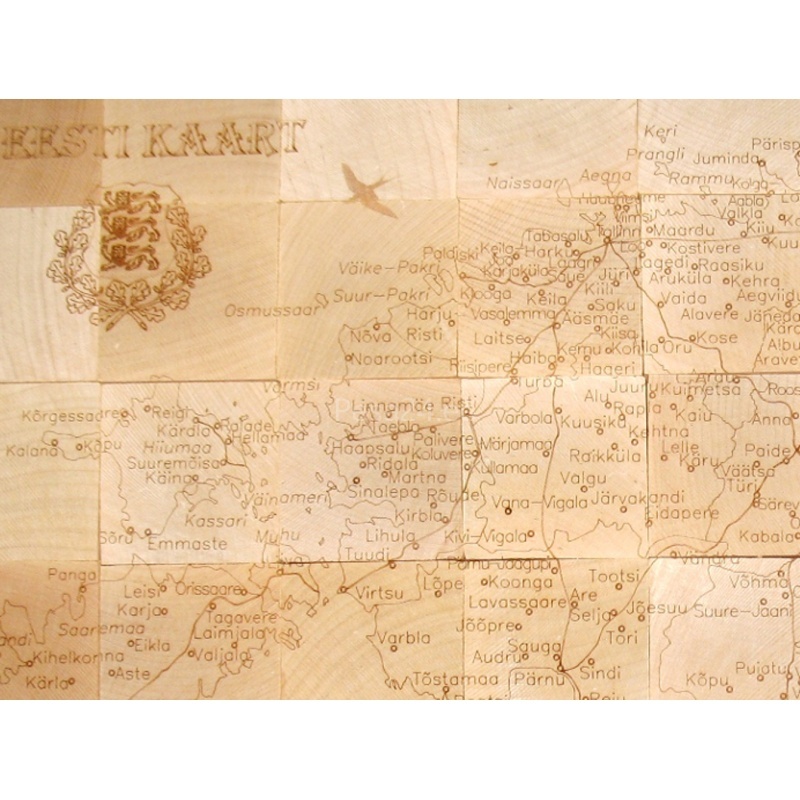 EESTI KAART
Keri
Pärisp
Prangli
Juminda
Aegna
Rammu
Kolga
Naissaar
Viimsi
Valkla
Tabasalu
Tallinn
Maardu
Kiiu
Paldiski
Keila
Harku
Kostivere
Väike-Pakri
Laagri
Jagedi
Raasiku
Karjaküla
Saue
Jüri
Aruküla
Kehra
Suur-Pakri
Klooga
Keila
Kiili
Vaida
Aegviidu
Osmussaar
Harju
Vasalemma
Saku
Ääsmäe
Alavere
Jäneda
Nõva
Risti
Laitse
Kiisa
Kose
Noarootsi
Riisipere
Haiba
Kernu
Kohila
Oru
Albu
Haageri
Arave
Vormsi
Turba
Juur
Kuimetsa
Aru
Roos
Kõrgessaare
Reigi
Linnamäe
Risti
Alu
Rapla
Kaiu
Anna
Kärdla
Palade
Taebla
Varbola
Kuusiku
Hellamaa
Palivere
Kehtna
Kalana
Kõpu
Hiiumaa
Haapsalu
Koluvere
Märjamaa
Lelle
Paide
Suuremõisa
Ridala
Kullamaa
Raikküla
Käru
Väätsa
Käina
Martna
Valgu
Türi
Väinameri
Sinalepa
Rõude
Vana-Vigala
Järvakandi
Särev
Kassari
Kirbla
Eidapere
Sõru
Emmaste
Muhu
Lihula
Kivi-Vigala
Kabala
Tuudi
Pärnu-Jaagupi
Vändra
Panga
Leisi
Orissaare
Virtsu
Lõpe
Koonga
Tootsi
Võhma
Karja
Lavassaare
Are
Selja
Jõesuu
Suure-Jaani
Saaremaa
Tagavere
Laimjala
Varbla
Jõõpre
Tori
Eikla
Valjala
Sauga
Kihelkonna
Audru
Sindi
Pujatu
Kärla
Aste
Tõstamaa
Pärnu
Kõpu